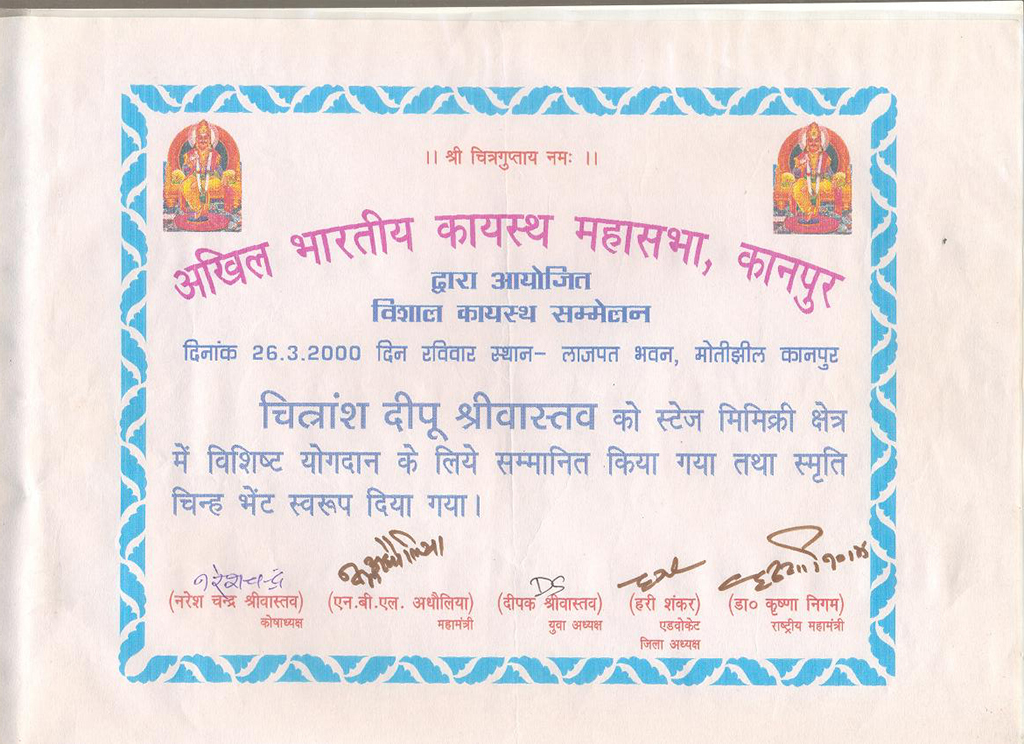 ।। श्री चित्रगुप्ताय नमः ।।
अखिल भारतीय कायस्थ महासभा, कानपुर
द्वारा आयोजित
विशाल कायस्थ सम्मेलन
दिनांक 26.3.2000 दिन रविवार स्थान– लाजपत भवन, मोतीझील कानपुर
चित्रांश दीपू श्रीवास्तव को स्टेज मिमिक्री क्षेत्र
में विशिष्ट योगदान के लिये सम्मानित किया गया तथा स्मृति
चिन्ह भेंट स्वरूप दिया गया।
नरेशचन्द्र DS
(नरेश चन्द्र श्रीवास्तव) (एन.बी.एल. अधौलिया) (दीपक श्रीवास्तव) (हरी शंकर) (डा० कृष्णा निगम)
कोषाध्यक्ष महामंत्री युवा अध्यक्ष एडवोकेट राष्ट्रीय महामंत्री
जिला अध्यक्ष